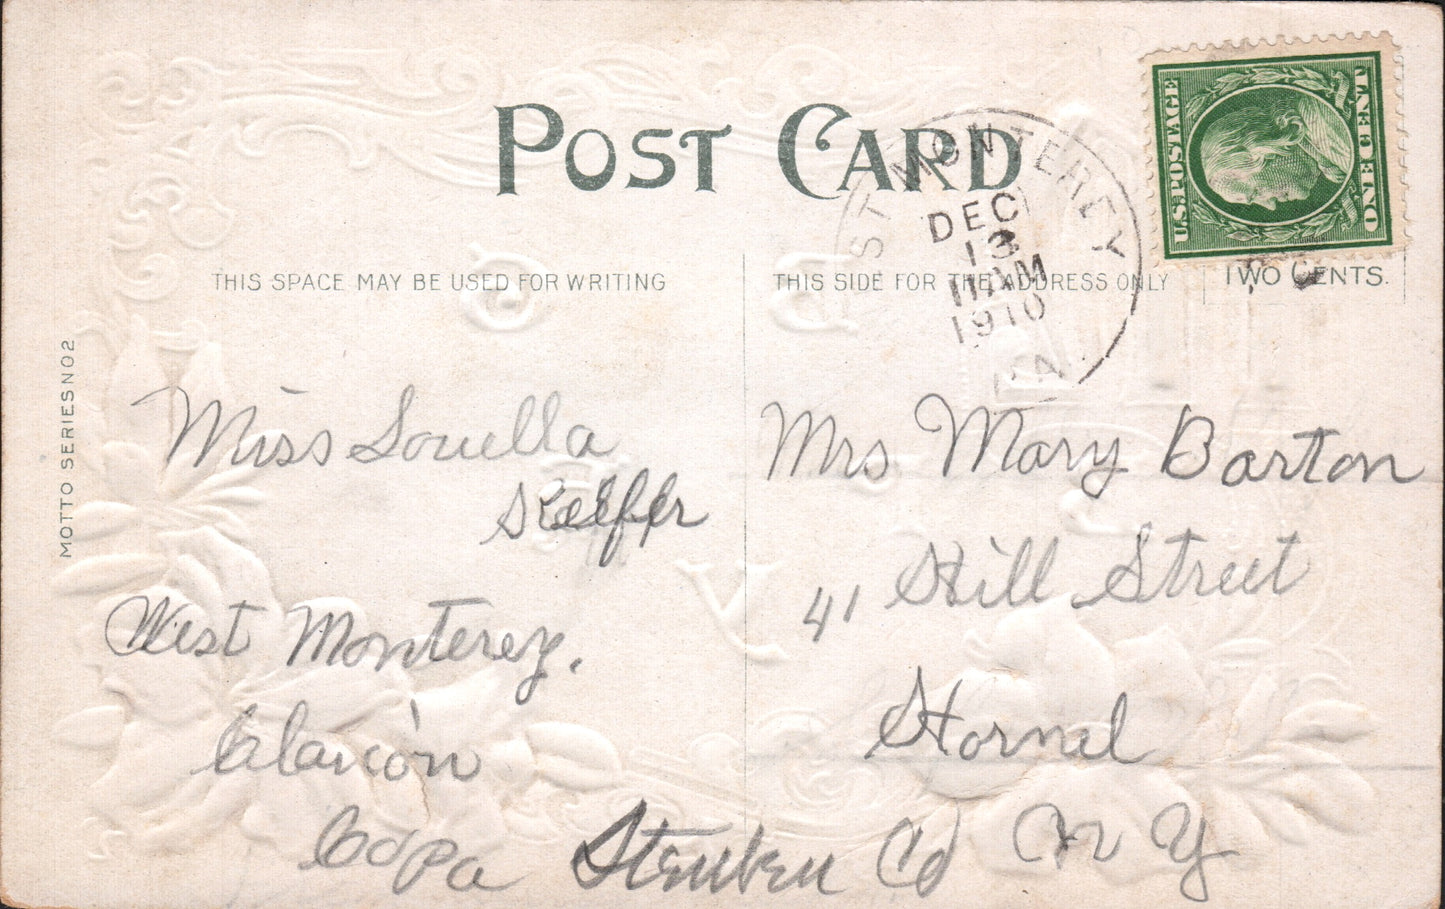 POST CARD
U.S. POSTAGE
ONE CENT
MONTEREY
DEC
13
11 AM
1910
PA
THIS SPACE MAY BE USED FOR WRITING
THIS SIDE FOR THE ADDRESS ONLY
TWO CENTS.
MOTTO SERIES NO 2
Miss Louella
Keeffer
West Monterey.
Clarion
Co Pa
Mrs Mary Barton
41 Hill Street
Hornel
Steuben Co N Y